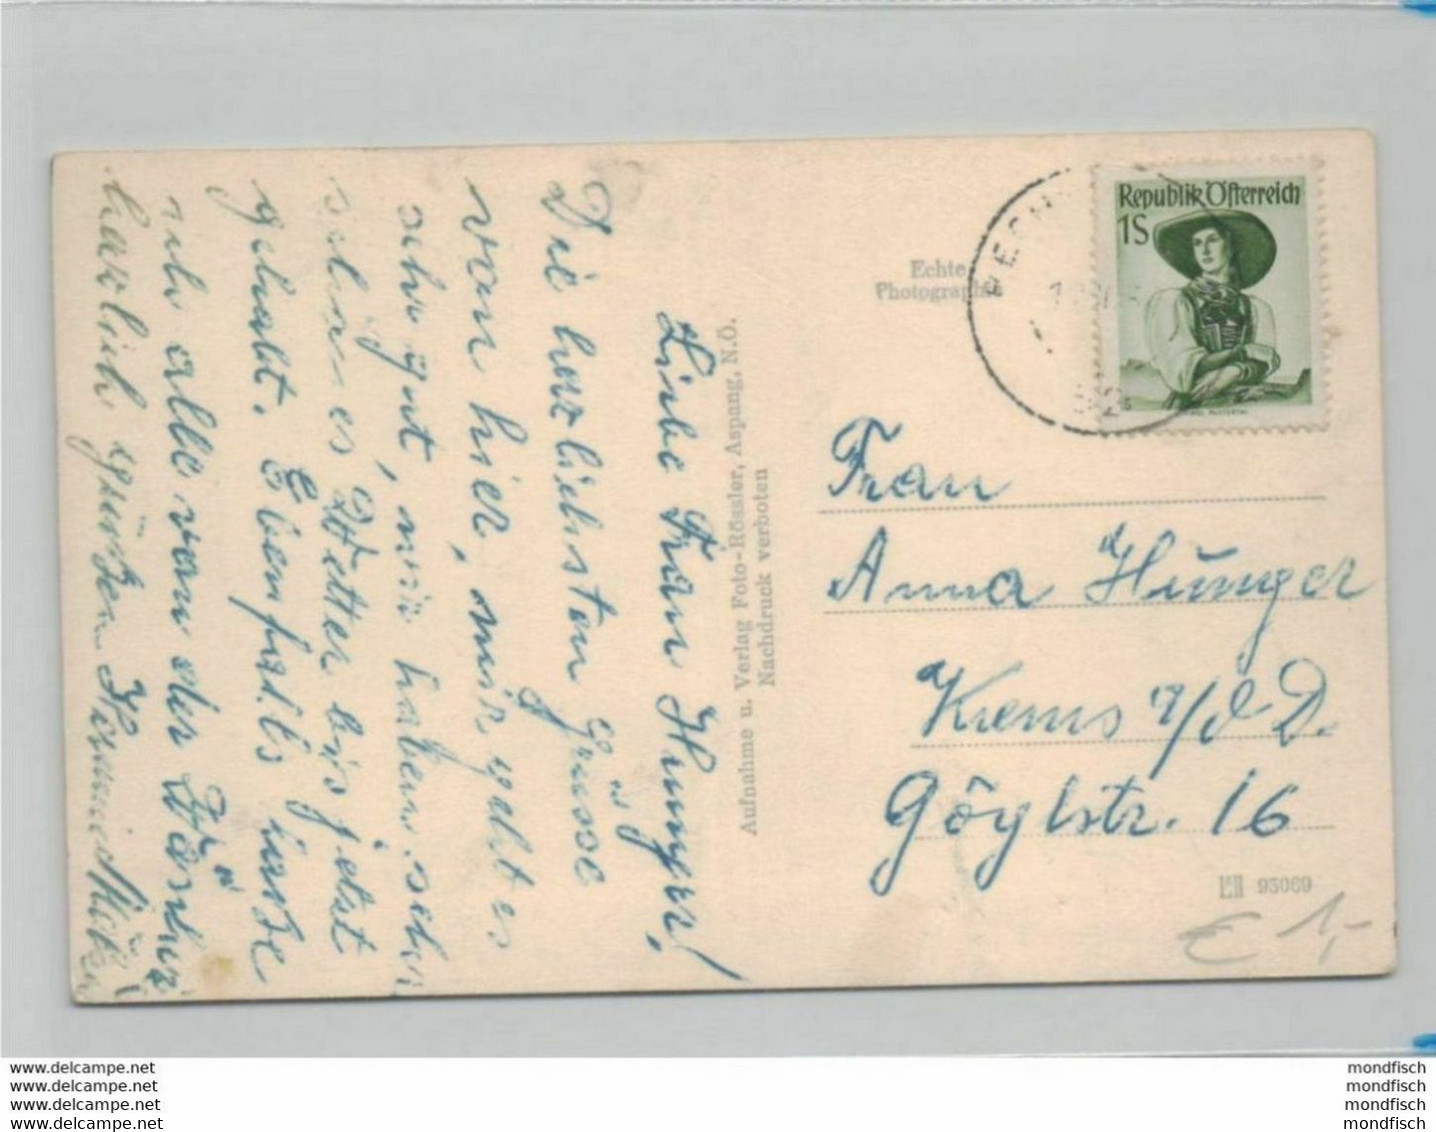 Liebe Frau Hunger!
Die herzlichsten Grüsse
von hier, mir geht es
sehr gut, wir haben sehr
schönes Wetter bis jetzt
gehabt. Ebenfalls lasse
ich alle von der
herzlich grüßen
Aufnahme u. Verlag Foto-Rössler, Aspang, N.Ö.
Nachdruck verboten
Echte
Photographie
Republik Österreich
1S
Frau
Anna Hunger
Krems a/d D.
Göglstr. 16
93069
€ 1,-
www.delcampe.net
www.delcampe.net
www.delcampe.net
www.delcampe.net
mondfisch
mondfisch
mondfisch
mondfisch